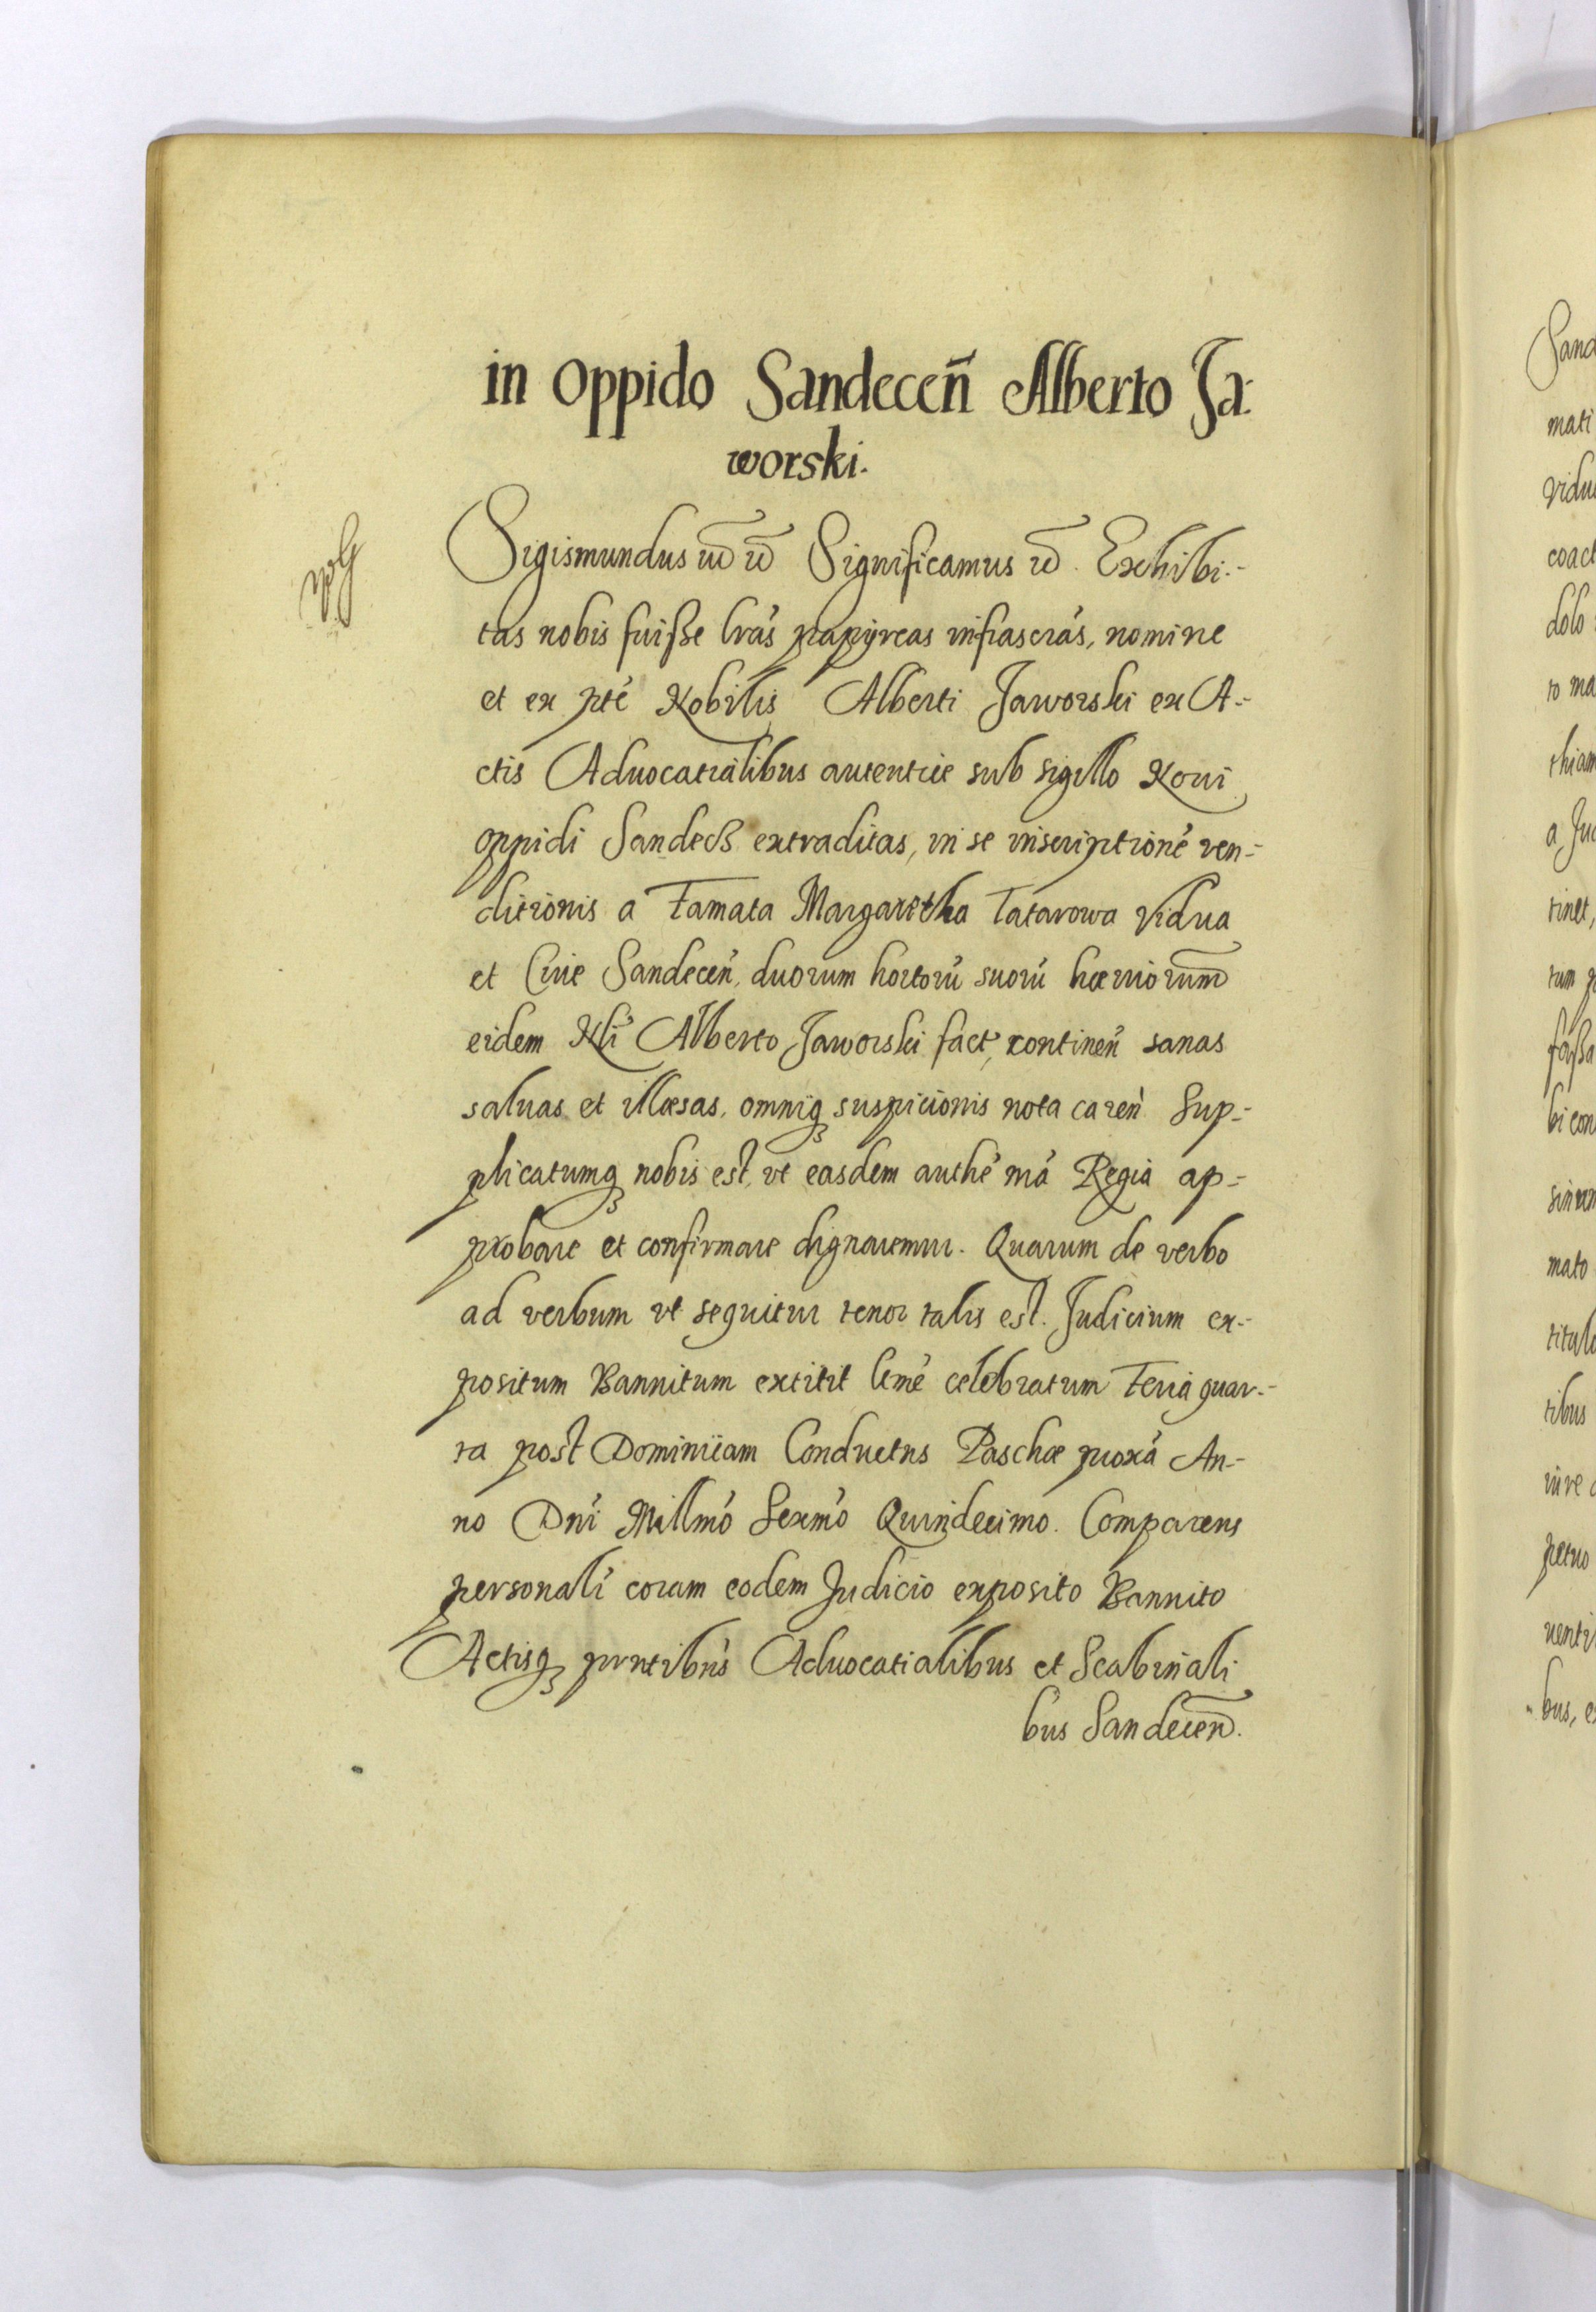 in oppido Sandeceñ Alberto Ja-
worski.
Sigismundus Significamus Exhibi-
tas nobis fuiße lrãs papÿreas infrascrãs, nomine
et ex ptẽ Nobilis Alberti Jaworski ex A-
ctis Aduocatialibus autentice sub sigillo Noui
oppidi Sandecß extraditas, in se inscriptionẽ ven-
ditionis a Famata Margaretha Tatarowa Vidua
et Ciue Sandeceñ, duorum hortorũ suorũ hæ
eidem Nli Alberto Jaworski fact, continen̄ sanas
saluas et illæsas, omniq suspicionis nota careñ Sup-
plicatumq nobis est, vt easdem authẽ nrã Regia ap-
probare et confirmare dignaremur. Quarum de verbo
ad verbum vt sequitur tenor talis est. Judicium ex-
positum Bannitum extitit ltmẽ celebratum Feria quar-
ta post Dominicam Conductus Paschæ proxã An-
no Dnĩ Millmõ Sexmõ Quindecimo. Comparens
personalĩ coram eodem Judicio exposito Bannito
Actisq pnntibũs Aduocatialibus et Scabinali
bus Sandeceñ.
Sand
mati
vidu
coact
dolo
to ma
thiam
a Jud
tinet,
faßa
bi con
mato
titulo
tibus
iure
petuo
bus, e